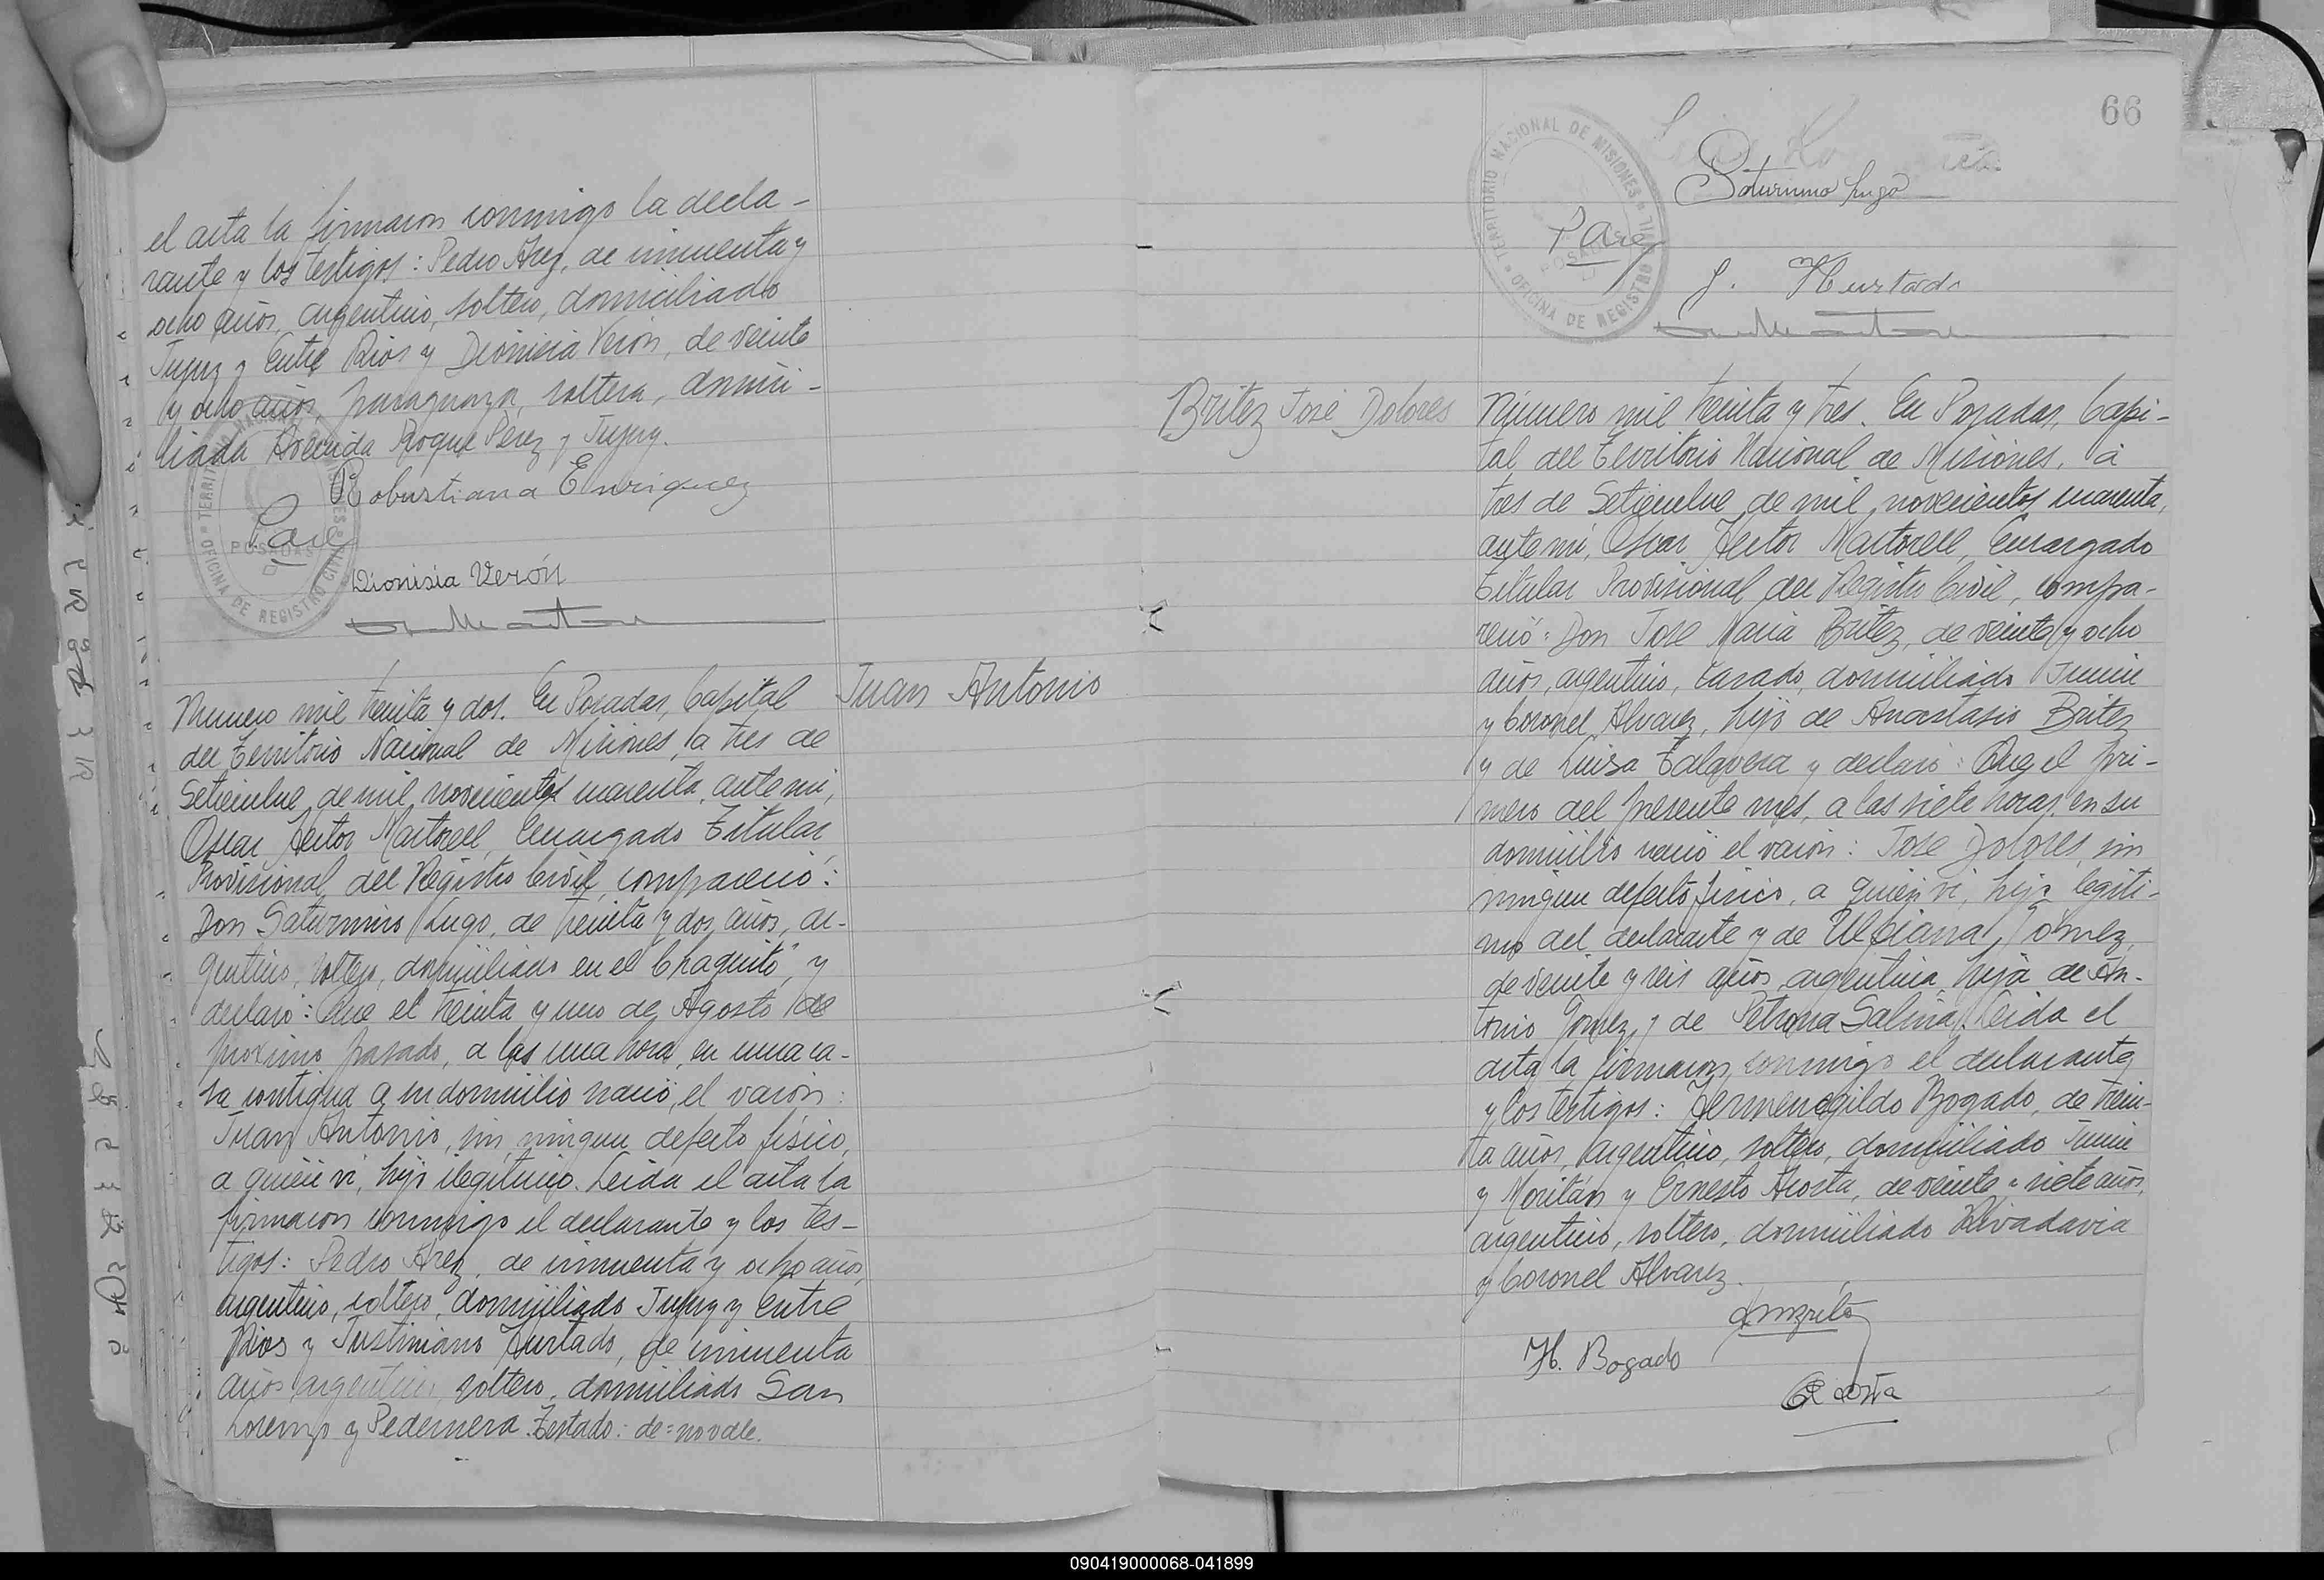 el acta la firmaron conmigo la decla-
rante y los testigos: Pedro Arez, de cincuenta y
ocho años, argentino, soltero, domiciliado
Jujuy y Entre Rios y Dionisia Verón, de veinte
y ocho años, paraguaya, soltera, domici-
liada Avenida Roque Pérez y Jujuy.
Robustiana Enriquez
OFICINA DE REGISTRO CIVIL
POSADAS
Dionisia Verón
Juan Antonio
Número mil treinta y dos. En Posadas, Capital
del Territorio Nacional de Misiones, a tres de
Setiembre de mil novecientos cuarenta, ante mi,
Oscar Hector Martorell, Encargado Titular
Provisional del Registro Civil, compareció:
Don Saturnino Lugo, de treinta y dos años, ar-
gentino, soltero, domiciliado en el "Chaquito" y
declaró: Que el treinta y uno de Agosto de
próximo pasado, a las una hora, en una ca-
sa contigua a su domicilio nació el varón:
Juan Antonio, sin ningun defecto físico,
a quién vi, hijo ilegitimo. Leida el acta la
firmaron conmigo el declarante y los tes-
tigos: Pedro Arez, de cincuenta y ocho años,
argentino, soltero, domiciliado Jujuy y Entre
Rios y Justiniano Hurtado, de cincuenta
años argentino, soltero, domiciliado San
Lorenzo y Pedernera. Testado: de=no vale.
66
TERRITORIO NACIONAL DE MISIONES
OFICINA DE REGISTRO CIVIL
POSADAS
Saturnino Lugo
J. Hurtado
Britez José Dolores
Número mil treinta y tres. En Posadas, Capi-
tal del Territorio Nacional de Misiones, a
tres de Setiembre de mil novecientos cuarenta,
ante mi, Oscar Hector Martorell, Encargado
Titular Provisional del Registro Civil, compa-
reció: Don José Maria Britez, de veinte y ocho
años, argentino, casado, domiciliado Junin
y Coronel Alvarez, hijo de Anastasio Britez
y de Luisa Talavera y declaró: Que el pri-
mero del presente mes, a las siete horas, en su
domicilio nació el varón: José Dolores, sin
ningun defecto físico, a quién vi, hijo legiti-
mo del declarante y de Ulpiana Gómez,
de veinte y seis años, argentina, hija de An-
tonio Gomez y de Petrona Salina. Leida el
acta la firmaron conmigo el declarante
y los testigos: Hermenegildo Bogado, de trein-
ta años, argentino, soltero, domiciliado Junin
y Moritán y Ernesto Acosta, de veinte y siete años,
argentino, soltero, domiciliado Rivadavia
y Coronel Alvarez.
H. Bogado
E Acosta
090419000068-041899